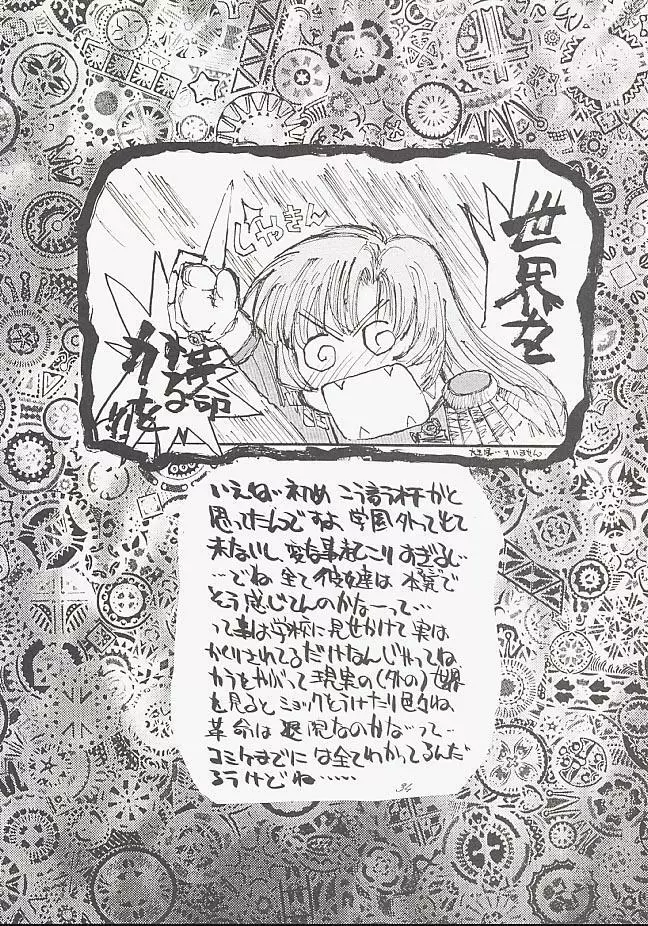 世界を
じゃきん
革命
する
力を
いえね 初め こう言う杯かと
思ってたんですよ 学園外って出て
来ないし 変な事起こりすぎるし…
…でね 全て彼女達は 本気で
そう感じてんのかなーって…
って事は学校に見せかけて実は
かくりされてるだけなんじゃってね
だから 現実の(外の)世界
を見ると ショックをうけたり 色々ね
革命は 退院なのかなって…
コミケまでには全てわかってるんだ
ろうけどね……
34